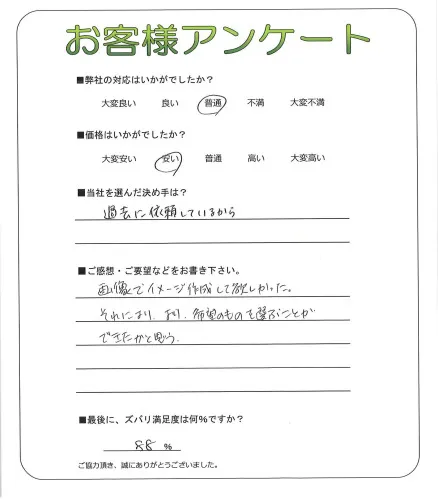 お客様アンケート
■弊社の対応はいかがでしたか？
大変良い 良い 普通 不満 大変不満
■価格はいかがでしたか？
大変安い 安い 普通 高い 大変高い
■当社を選んだ決め手は？
過去に依頼しているから
■ご感想・ご要望などをお書き下さい。
画像でイメージ作成して欲しかった。
それにより、より、希望のものを選ぶことが
できたかと思う。
■最後に、ズバリ満足度は何％ですか？
88 %
ご協力頂き、誠にありがとうございました。